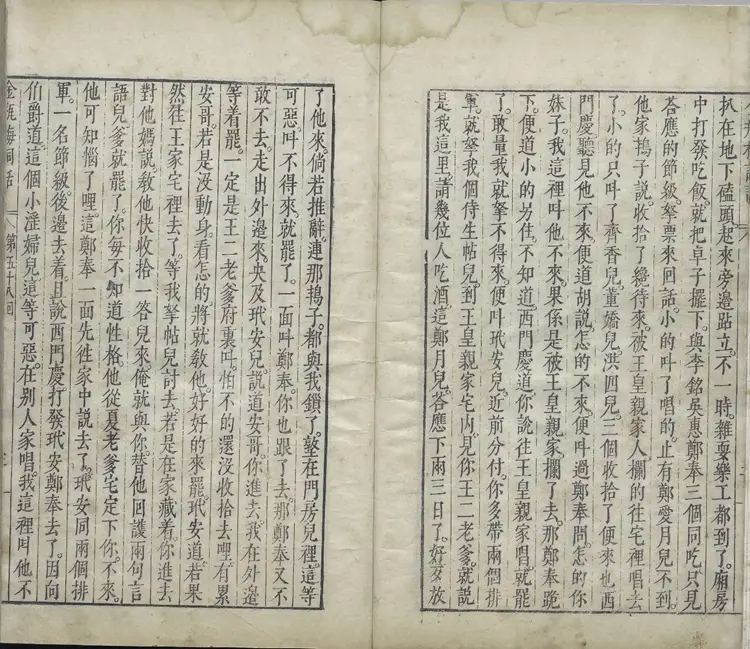 扒在地下磕頭起來旁邊跕立。不一時。雜耍樂工都到了。廂房
中打發吃飯。就把卓子擺下。與李銘吳惠鄭奉三個同吃。只見
答應的節級。拏票來回話。小的叫了唱的。止有鄭愛月兒不到。
他家鴇子說。收拾了纔待來。被王皇親家人攔的徃宅裡唱去
了。小的只叫了齊香兒。董嬌兒。洪四兒。三個收拾了便來也。西
門慶聽見他不來。便道胡說。怎的不來。便叫過鄭奉問。怎的你
妹子。我這裡叫他不來。果係是被王皇親家攔了去。那鄭奉跪
下。便道小的另住。不知道。西門慶道。你說徃王皇親家唱就罷
了。敢量我就拏不得來。便叫玳安兒近前分付。你多帶兩個排
軍。就拏我個侍生帖兒。到王皇親家宅內。見你王二老爹。就說
是我這里。請幾位人吃酒。這鄭月兒。答應下兩三日了。好歹放
了他來。倘若推辭。連那鴇子。都與我鎖了。墩在門房兒裡。這等
可惡。叫不得來。就罷了。一面叫鄭奉。你也跟了去。那鄭奉又不
敢不去。走出外邊來。央及玳安兒。說道安哥。你進去。我在外邊
等着罷。一定是王二老爹府裏叫。怕不的還沒收拾去哩。有累
安哥。若是沒動身。看怎的。將就敎他好好的來罷。玳安道。若果
然徃王家宅裡去了。等我拏帖兒討去。若是在家藏着。你進去
對他媽說。敎他快收拾一荅兒來。俺就與你。替他回護兩句言
語兒。爹就罷了。你每不知道性格。他從夏老爹宅定下你。不來。
他可知惱了哩。這鄭奉一面先徃家中說去了。玳安同兩個排
軍。一名節級。後邊去着。且說西門慶打發玳安鄭奉去了。因向
伯爵道。這個小淫婦兒。這等可惡。在別人家唱。我這裡叫他不
金瓶梅詞話 第五十八回